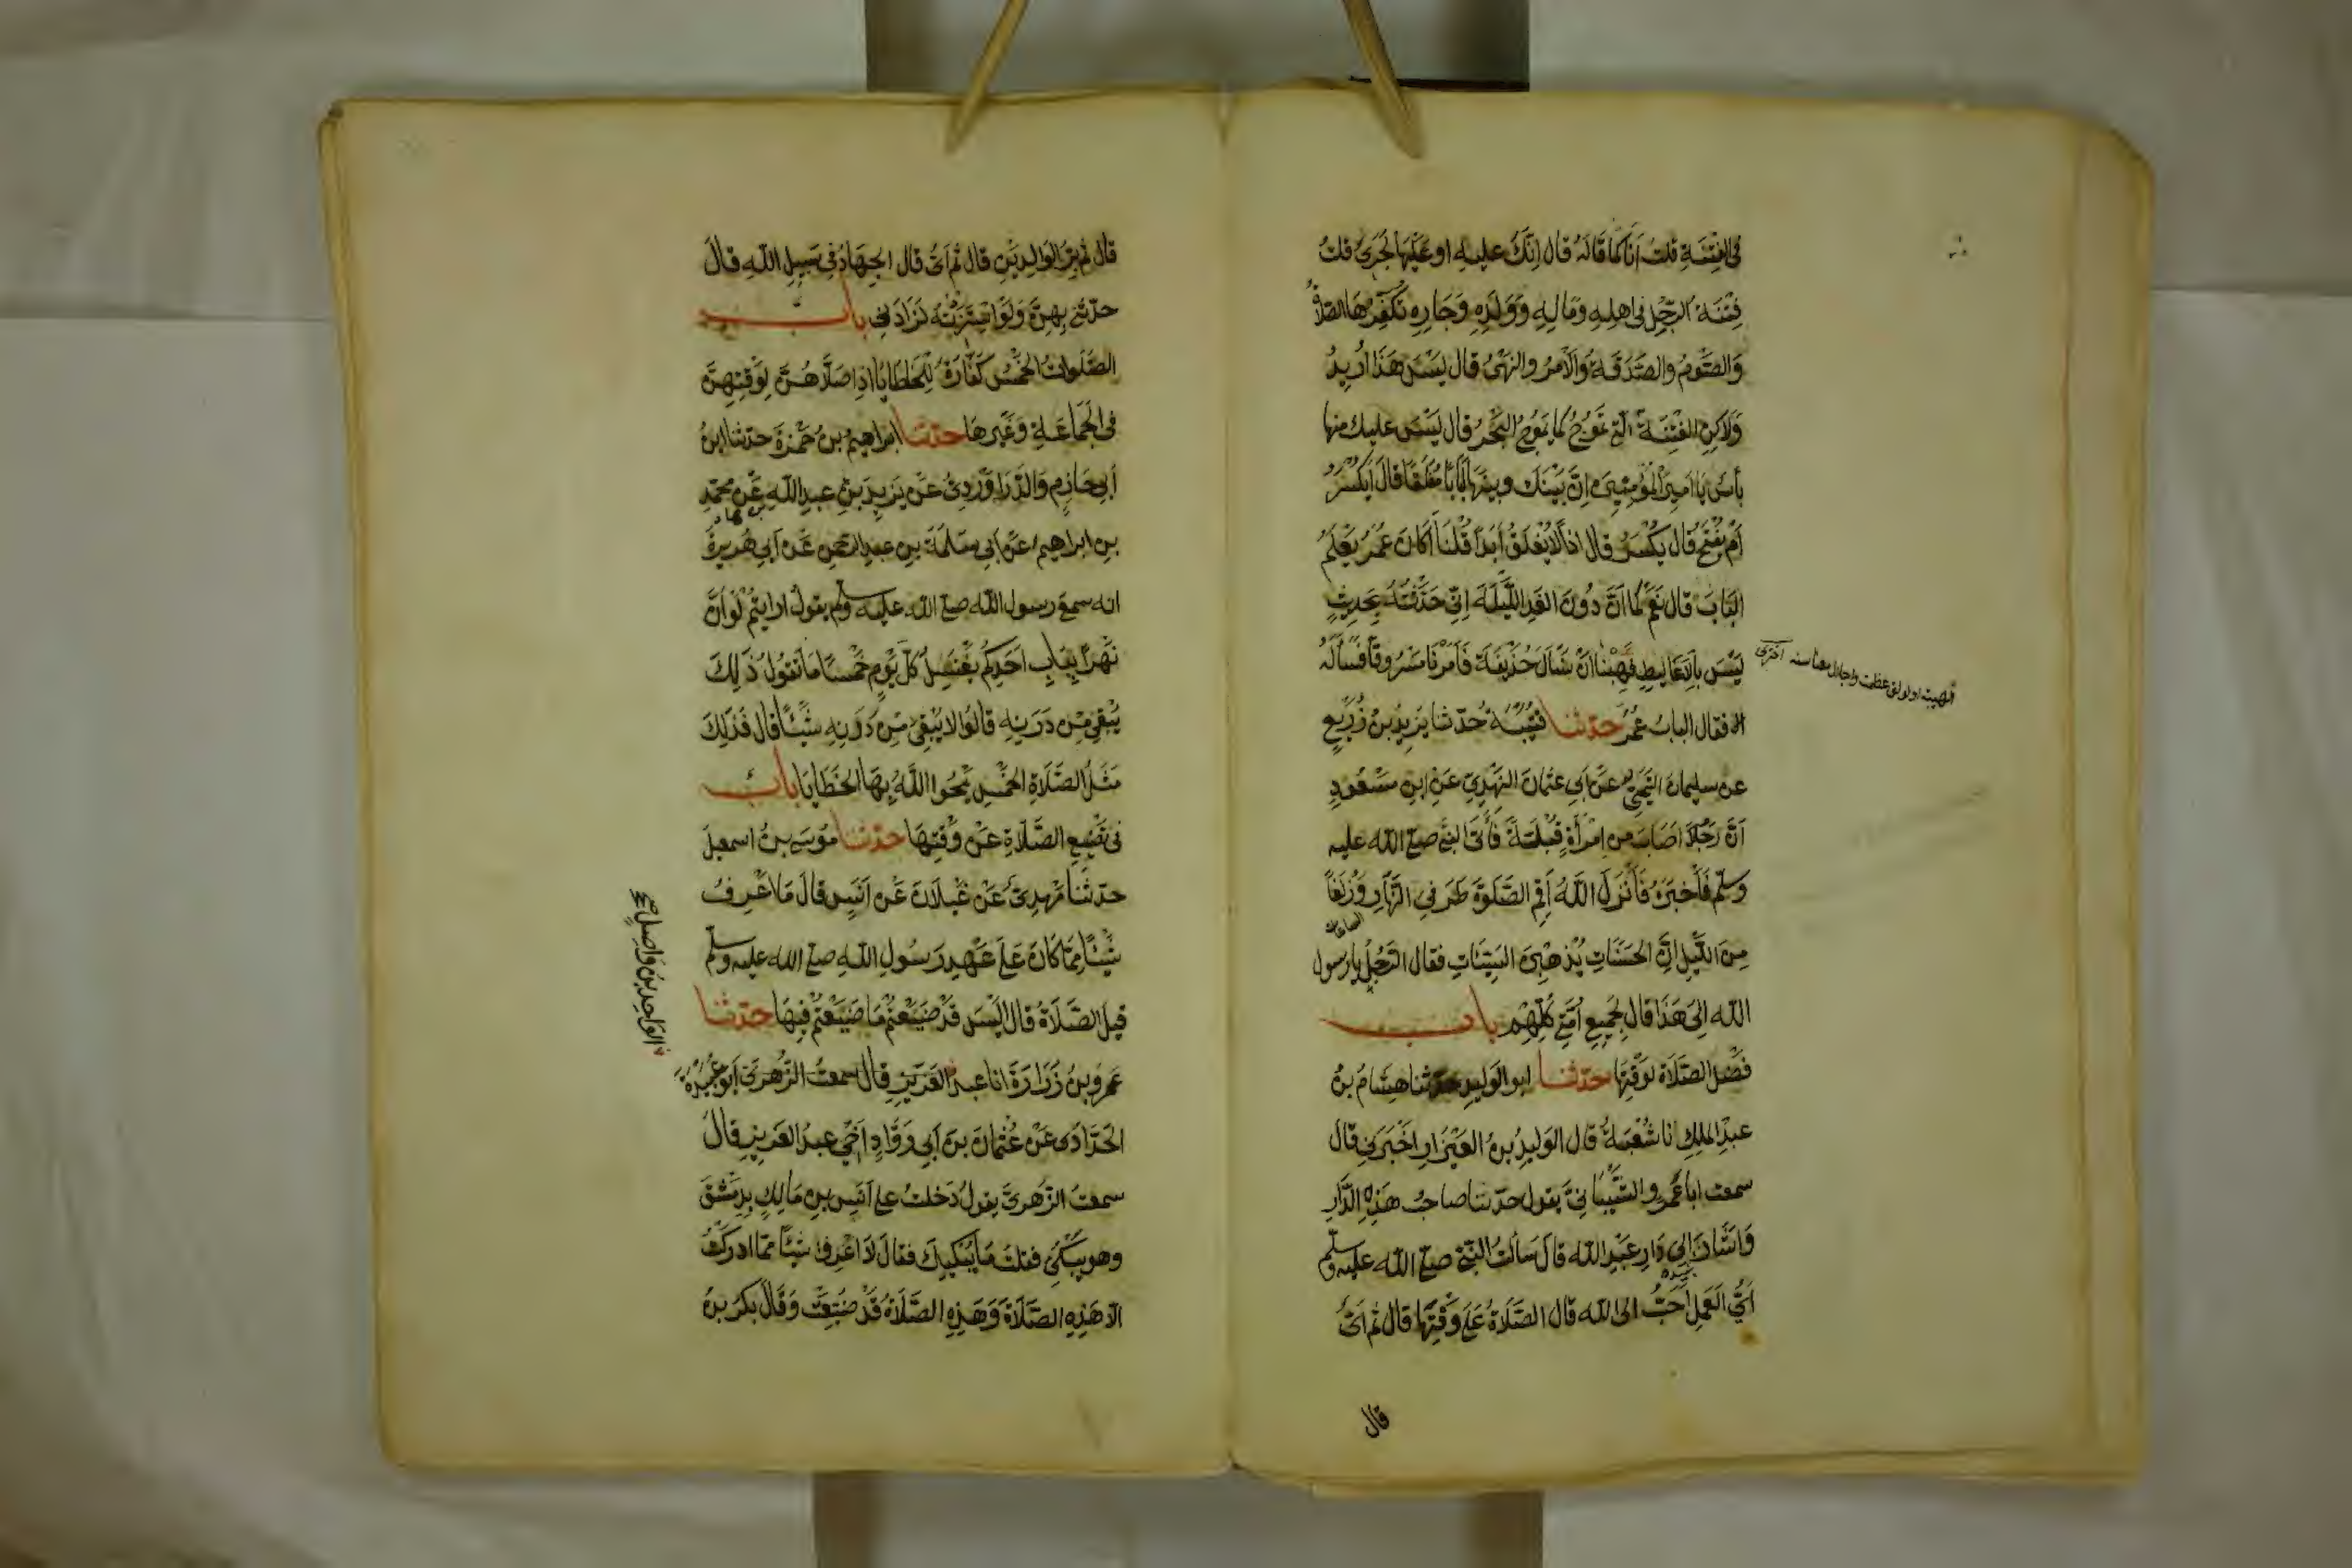 فى الفِتْنَةِ قلتُ اَنَا كَمَا قَالَهُ قال اِنَّكَ عليه او عَلَيْهَا لَجَرِىٌ قلتُ
فِتْنَةُ الرَّجُلِ فى اهلِهِ وَمَالِهِ وَوَلَدِهِ وَجَارِهِ تُكَفِّرُهَا الصّلاةُ
وَالصَّوْمُ والصَّدَقَةُ وَالْاَمْرُ والنَهْىُ قال لَيْسَ هَذَا اُرِيدُ
وَلاكِنِ الفِتْنَةُ الّتِى تَمُوْجُ كما يَمُوْجُ الْبَحْرُ قال لَيْسَ عليك منها
بأسٌ يَا اَمِيْرَ الْمُؤْمِنِينَ اِنَّ بَيْنَكَ وبينها لَبَابًا مُغْلَقًا قالَ اَيُكْسَرُ
اَمْ يُفْتَحُ قَالَ يُكْسَرُ قال اذًا لاَ يُغْلَقُ اَبَدًا قُلْنَا اَكَانَ عُمَرُ يَعْلَمُ
البَابَ قال نَعَمْ كما اَنَّ دُونَ الغَدِ اللَّيْلَةَ اِنِّى حَدَّثْتُهُ بِحَدِيثٍ
لَيْسَ بِالاَغَالِيطِ فَهِبْنَا اَنْ نَسْألَ حُذَيْفَةَ فَاَمَرْنَا مَسْرُوقًا فَسَأَلَهُ
فقال البابُ عُمَرُ حدّثنا قُتَيْبَةُ حدّثنا يَزِيدُ بنُ زُرَيْعٍ
عن سليمانَ التَّيْمِيّ عَن اَبِى عثمانَ النَهْدِيّ عَن ابنِ مَسْعُودٍ
اَنَّ رَجُلًا اَصَابَ مِن اِمْرَأَةٍ قُبْلَةً فَأَتَى النبىَّ صلى الله عليه
وسلّم فَأَخْبَرَهُ فَأَنْزَلَ اللَّهُ اَقِمِ الصَّلوةَ طَرَفىِ النَّهَارِ وَزُلَفًا
مِنَ اللَّيْلِ اِنَّ الحَسَنَاتِ يُذْهِبْنَ السَّيِّئَاتِ فقال الرَّجُلُ يا رسول
الله اَلِىَ هَذَا قال لِجَمِيعِ اُمَّتِى كُلِّهِمْ باب
فَضْلِ الصَّلَاةِ لوَقْتِهَا حدّثنا ابو الوَليدِ حدّثنا هِشَامُ بنُ
عبدِ الملِكِ انا شُعْبَةُ قال الوَليدُ بنُ العَيْزَارِ اَخْبَرَنِى قال
سمعت ابا عَمْرٍو الشَّيْبَانِىَّ يقول حدّثنا صاحبُ هَذِهِ الدَّارِ
وَاَشَارَ اِلى دَارِ عَبْدِ اللّه قال سَأَلتُ النَّبِىَّ صلى الله عليه وسلم
اَىُّ الْعَمَلِ اَحَبُّ الى الله قال الصَّلَاةُ عَلَى وَقْتِهَا قال ثم اَىٌّ
قال
قال ثم بِرُّ الوَالِدَيْنِ قال ثم اَىٌّ قال الجِهَادُ فى سَبِيلِ اللّهِ قالَ
حدّثنى بِهِنَّ وَلَوِ اسْتَزَدْتُهُ لَزَادَنِى باب
الصَّلَوَاتُ الخَمْسُ كَفَّارَةٌ لِلْخَطَايَا اذا صَلّاهُنَّ لِوَقْتِهِنَّ
فى الجَمَاعَةِ وَغَيْرِهَا حدّثنا ابراهيمُ بنُ حَمْزَةَ حدّثنا ابنُ
اَبِى حَازِمٍ وَالدَّرَاوَرْدِىُّ عَنْ يَزِيدَ بنِ عبدِ اللّه عَن محمّدِ
بنِ ابراهيم عَن اَبِى سَلَمَةَ بنِ عبدِ الرّحمنِ عَن اَبِى هُرَيرةَ
انه سمعَ رسول الله صلى الله عليه وسلم يقولُ ارايتُم لَوْ اَنَّ
نَهْرًا بِبَابِ اَحَدِكُم يَغْتَسِلُ كلَّ يَوْمٍ خمْسًا مَا تَقُولُ ذَلِكَ
يُبْقِى مِن دَرَنِهِ قالُوا لا يُبْقِى مِن دَرَنِهِ شَيْئًا قال فَذَلِكَ
مَثَلُ الصَّلَاةِ الخَمْسِ يَمْحُوا اللَّهُ بِهَا الخَطَايَا باب
فى تَضْيِيعِ الصَّلَاةِ عَنْ وَقْتِهَا حدّثنا مُوسَى بنُ اسمعيلَ
حدثنا مَهْدِىٌّ عَنْ غَيْلَانَ عَن اَنَسٍ قال مَا اَعْرِفُ
شَيْئًا مِمَّا كَانَ عَلَى عَهْدِ رَسُولِ اللّهِ صلى الله عليه وسلم
قِيلَ الصَّلَاةُ قال اَلَيْسَ قَدْ ضَيَّعْتُمْ مَا ضَيَّعْتُم فِيهَا حدّثنا
عَمْرُو بنُ زُرَارَةَ انا عبدُ الوَاحِدِ بنُ وَاصِلٍ اَبُو عُبَيْدَةَ
الحَدَّادُ عَنْ عُثْمَانَ بنِ اَبِى رَوَّادٍ اَخِى عبدِ العَزِيزِ قالَ
سمعتُ الزُهْرِىَّ يقولُ دَخلتُ على اَنَسِ بنِ مَالِكٍ بِدِمَشْقَ
وهو يَبْكِى فقلتُ مَا يُبْكِيكَ فقالَ لَا اَعْرِفُ شَيْئًا ممّا ادركتُ
الّا هَذِهِ الصَّلَاةَ وَهَذِهِ الصَّلَاةُ قَدْ ضُيِّعَتْ وَقَالَ بكرُ بنُ